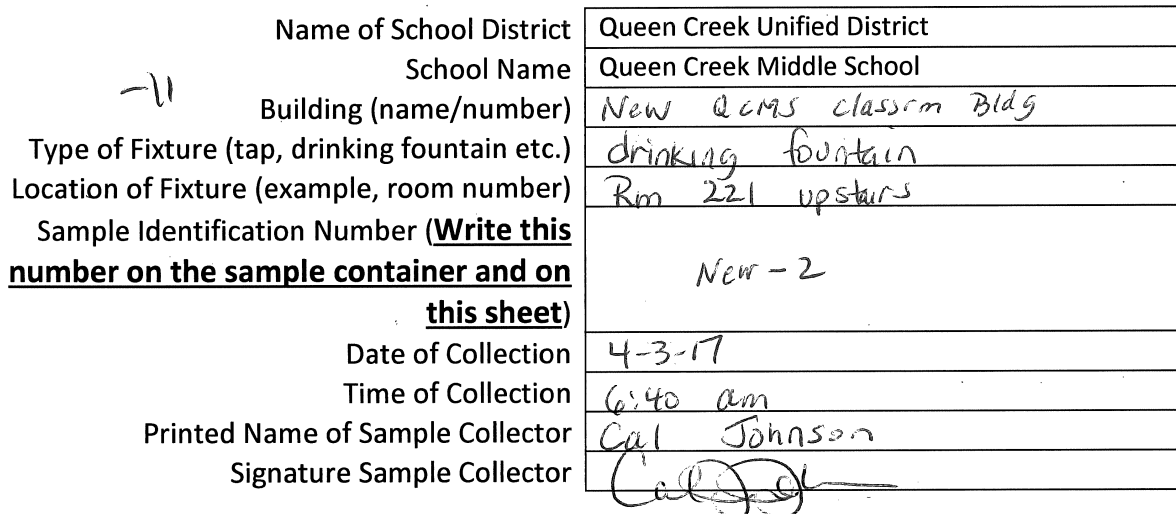 Name of School District Queen Creek Unified District
School Name Queen Creek Middle School
-11
Building (name/number) New QCMS classrm Bldg
Type of Fixture (tap, drinking fountain etc.) drinking fountain
Location of Fixture (example, room number) Rm 221 upstairs
Sample Identification Number (Write this
number on the sample container and on New-2
this sheet)
Date of Collection 4-3-17
Time of Collection 6:40 am
Printed Name of Sample Collector Cal Johnson
Signature Sample Collector Cal